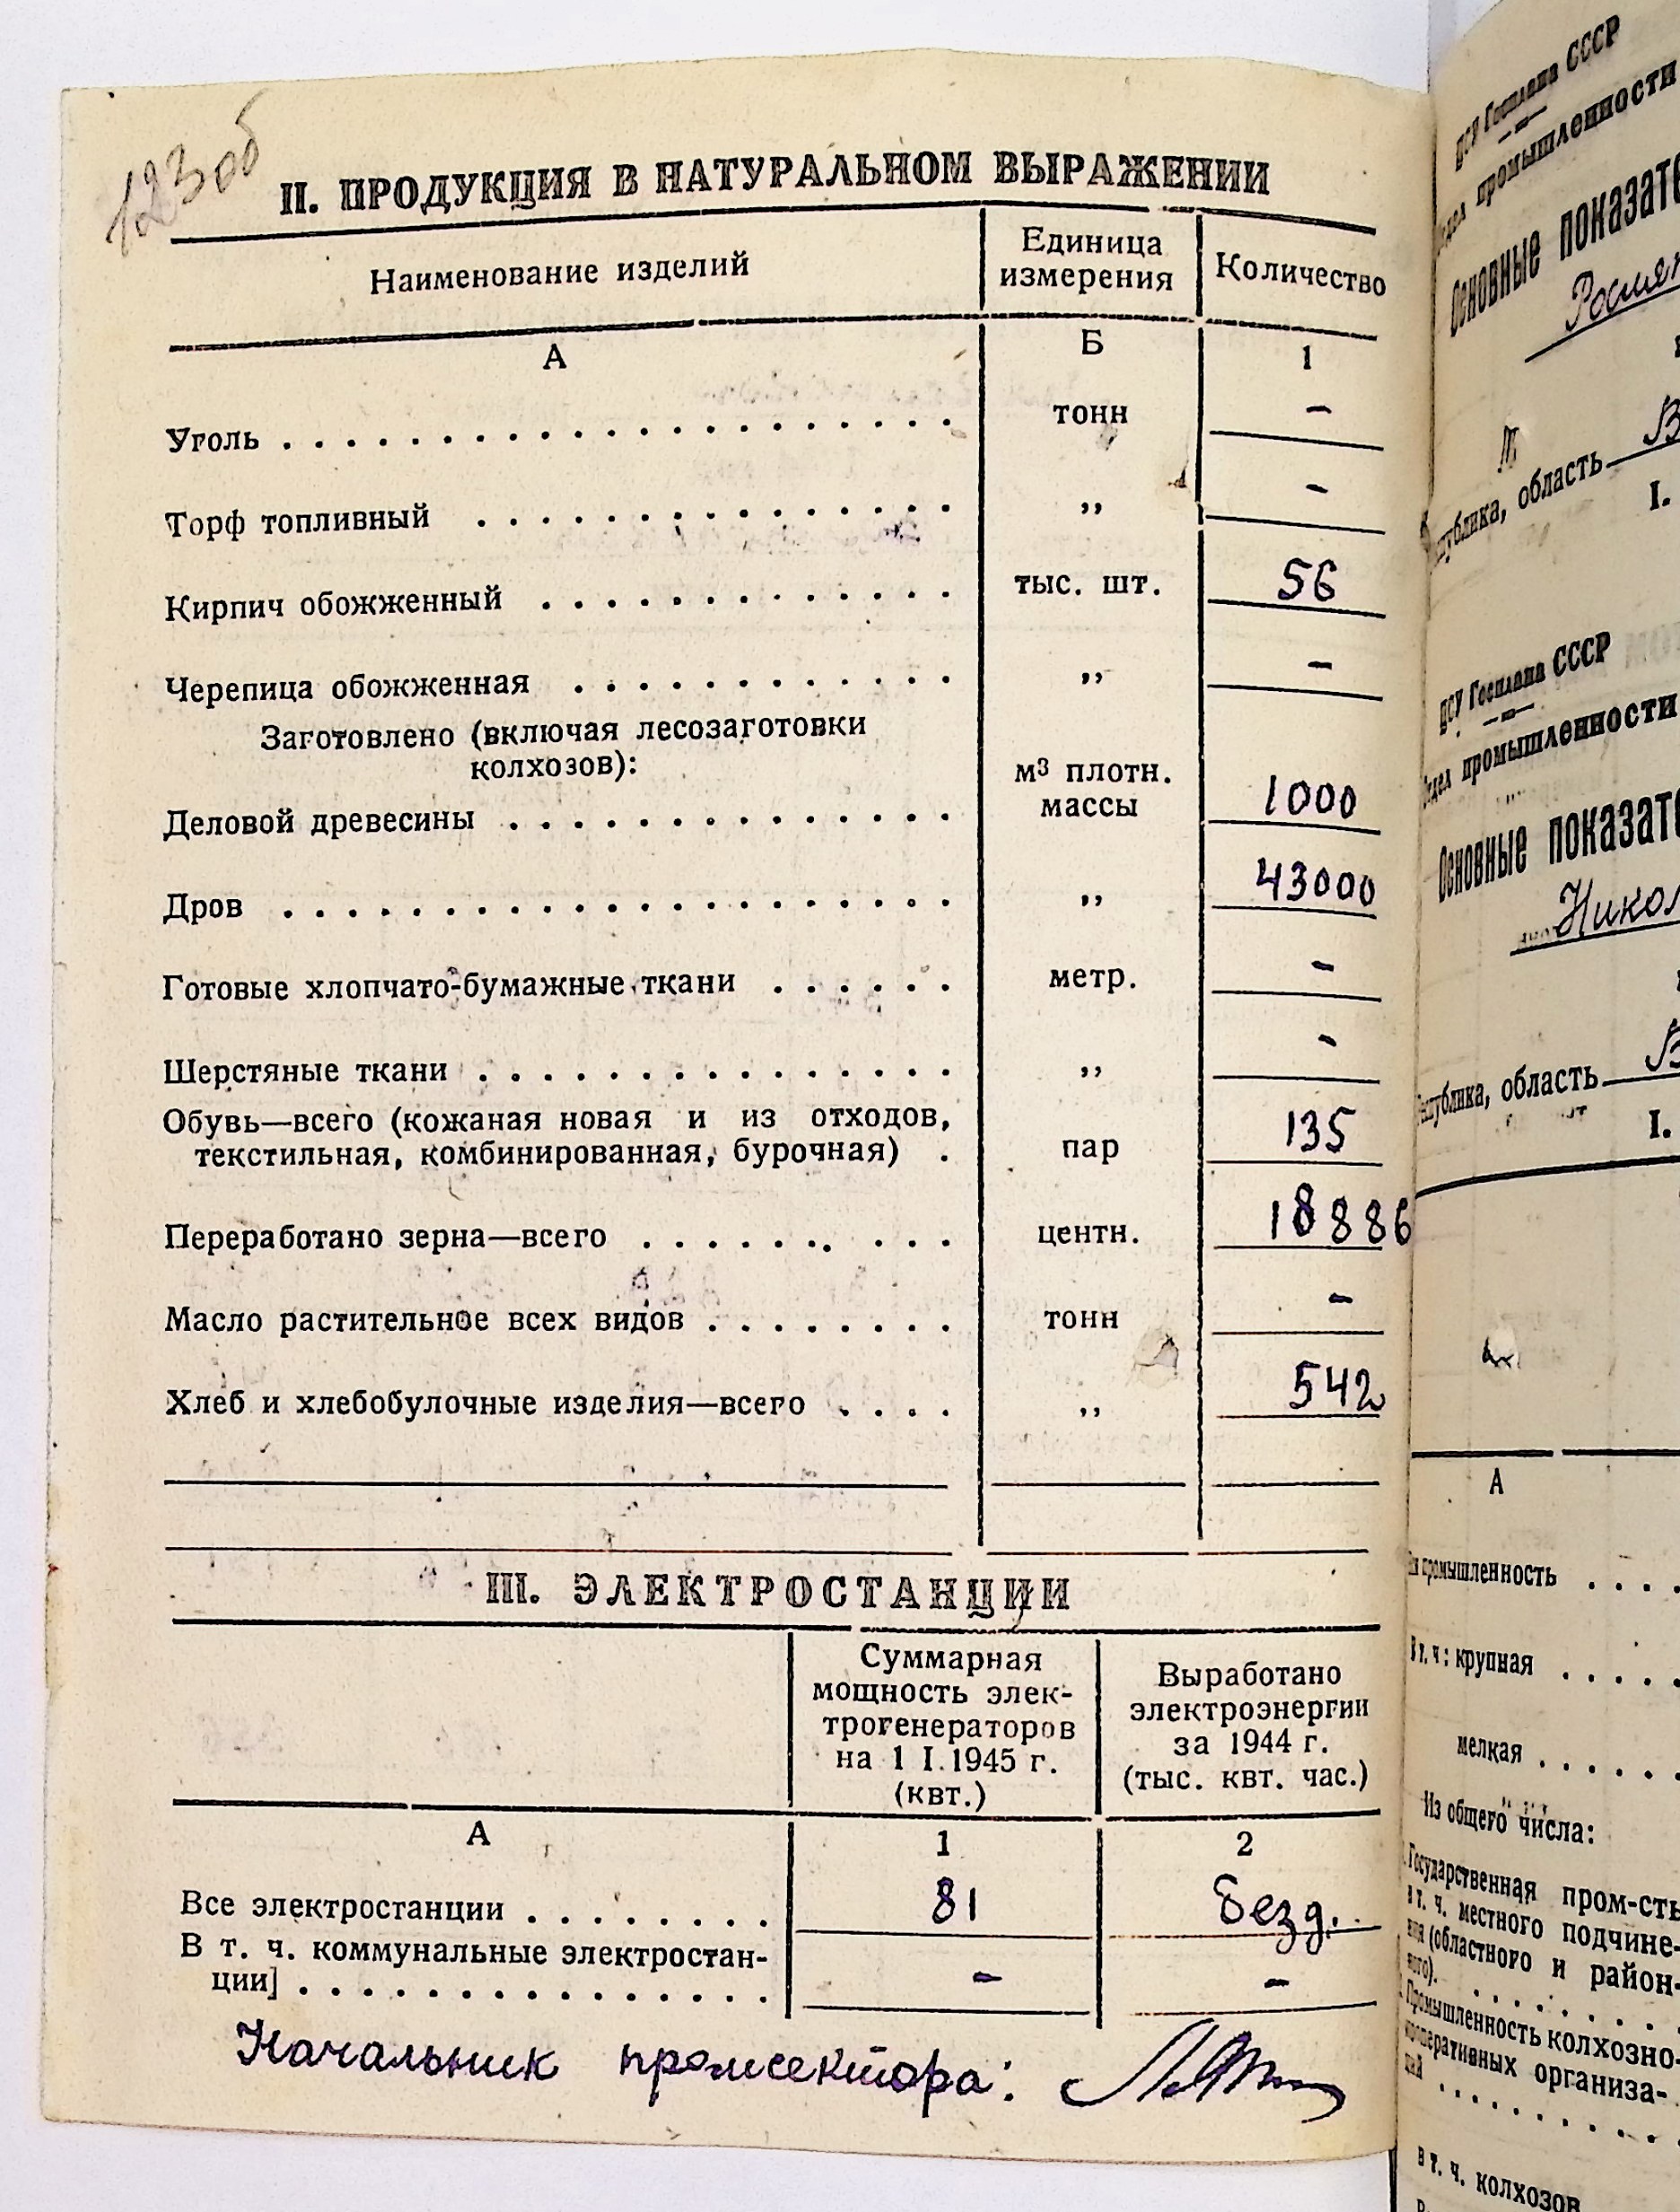 123об
II. ПРОДУКЦИЯ В НАТУРАЛЬНОМ ВЫРАЖЕНИИ
Наименование изделий
Единица
измерения
Количество
А Б 1
Уголь . . . . . . . . . . . . . . . . . . . . . тонн –
Торф топливный . . . . . . . . . . . . . . . ,, –
Кирпич обожженный . . . . . . . . . . . . . тыс. шт. 56
Черепица обожженная . . . . . . . . . . . . ,, –
Заготовлено (включая лесозаготовки
колхозов):
м³ плотн.
массы
Деловой древесины . . . . . . . . . . . . . . 1000
Дров . . . . . . . . . . . . . . . . . . . . . ,, 43000
Готовые хлопчато-бумажные ткани . . . . . . метр. –
Шерстяные ткани . . . . . . . . . . . . . . . ,, –
Обувь—всего (кожаная новая и из отходов,
текстильная, комбинированная, бурочная) . пар 135
Переработано зерна—всего . . . . . . . . . . центн. 18886
Масло растительное всех видов . . . . . . . . тонн –
Хлеб и хлебобулочные изделия—всего . . . . ,, 542
III. ЭЛЕКТРОСТАНЦИИ
Суммарная
мощность элек-
трогенераторов
на 1 I.1945 г.
(квт.)
Выработано
электроэнергии
за 1944 г.
(тыс. квт. час.)
А 1 2
Все электростанции . . . . . . . . 81 безд.
В т. ч. коммунальные электростан-
ции] . . . . . . . . . . . . . . . – –
Начальник промсектора:
ЦСУ Госплана СССР
промышленности
Основные показат
область
I.
ЦСУ Госплана СССР
промышленности
Основные показат
Никол
область
I.
А
промышленность . . . .
В т. ч: крупная . . . . .
мелкая . . . . . .
Из общего числа:
Государственная пром-сть
В т. ч. местного подчине-
(областного и район-
Промышленность колхозно-
кооперативных организа-
в т. ч. колхозов